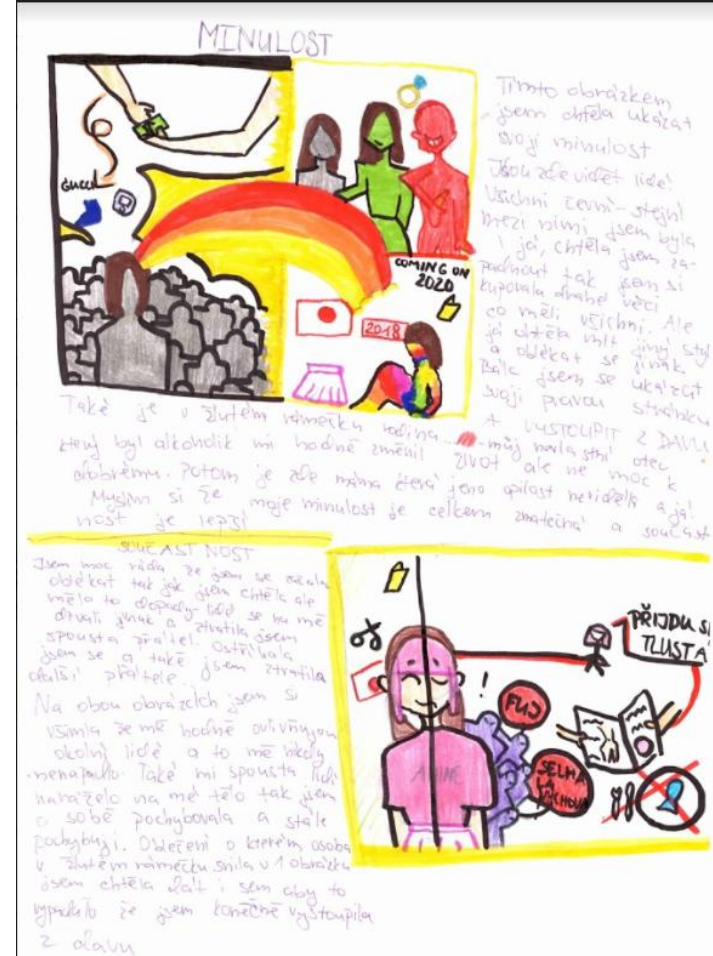 MINULOST
GUCCI
COMING ON
2020
2018
Tímto obrázkem
jsem chtěla ukázat
svoji minulost
Jsou zde vidět lidé
Všichni černí - stejní
mezi nimi jsem byla
i já, chtěla jsem za-
padnout tak jsem si
kupovala drahé věci
co měli všichni. Ale
já chtěla mít jiný styl
a oblékat se jinak
Bála jsem se ukázat
svoji pravou stránku
A VYSTOUPIT Z DAVU
Také je v žlutém rámečku rodina můj nevlastní otec
který byl alkoholik mi hodně změnil život ale ne moc k
dobrému. Potom je zde máma která jeho opilost neviděla a já!
Myslím si že moje minulost je celkem zmatečná a součas-
nost je lepší
SOUČASTNOST
Jsem moc ráda že jsem se začala
oblékat tak jak jsem chtěla ale
mělo to dopady - lidé se na mě
dívali jinak a ztratila jsem
spousta přátel. Ostříhala
jsem se a také jsem ztratila
další přátele.
Na obou obrázcích jsem si
všimla že mě hodně ovlivňujou
okolní lidé a to mě nikdy
nenapadlo. Také mi spousta lidí
naráželo na mé tělo tak jsem
o sobě pochybovala a stále
pochybuji. Oblečení o kterém osoba
v žlutém rámečku snila v 1 obrázku
jsem chtěla dát i sem aby to
vypadalo že jsem konečně vystoupila
z davu
PŘIJDU SI
TLUSTÁ
!
FUJ
ANIME